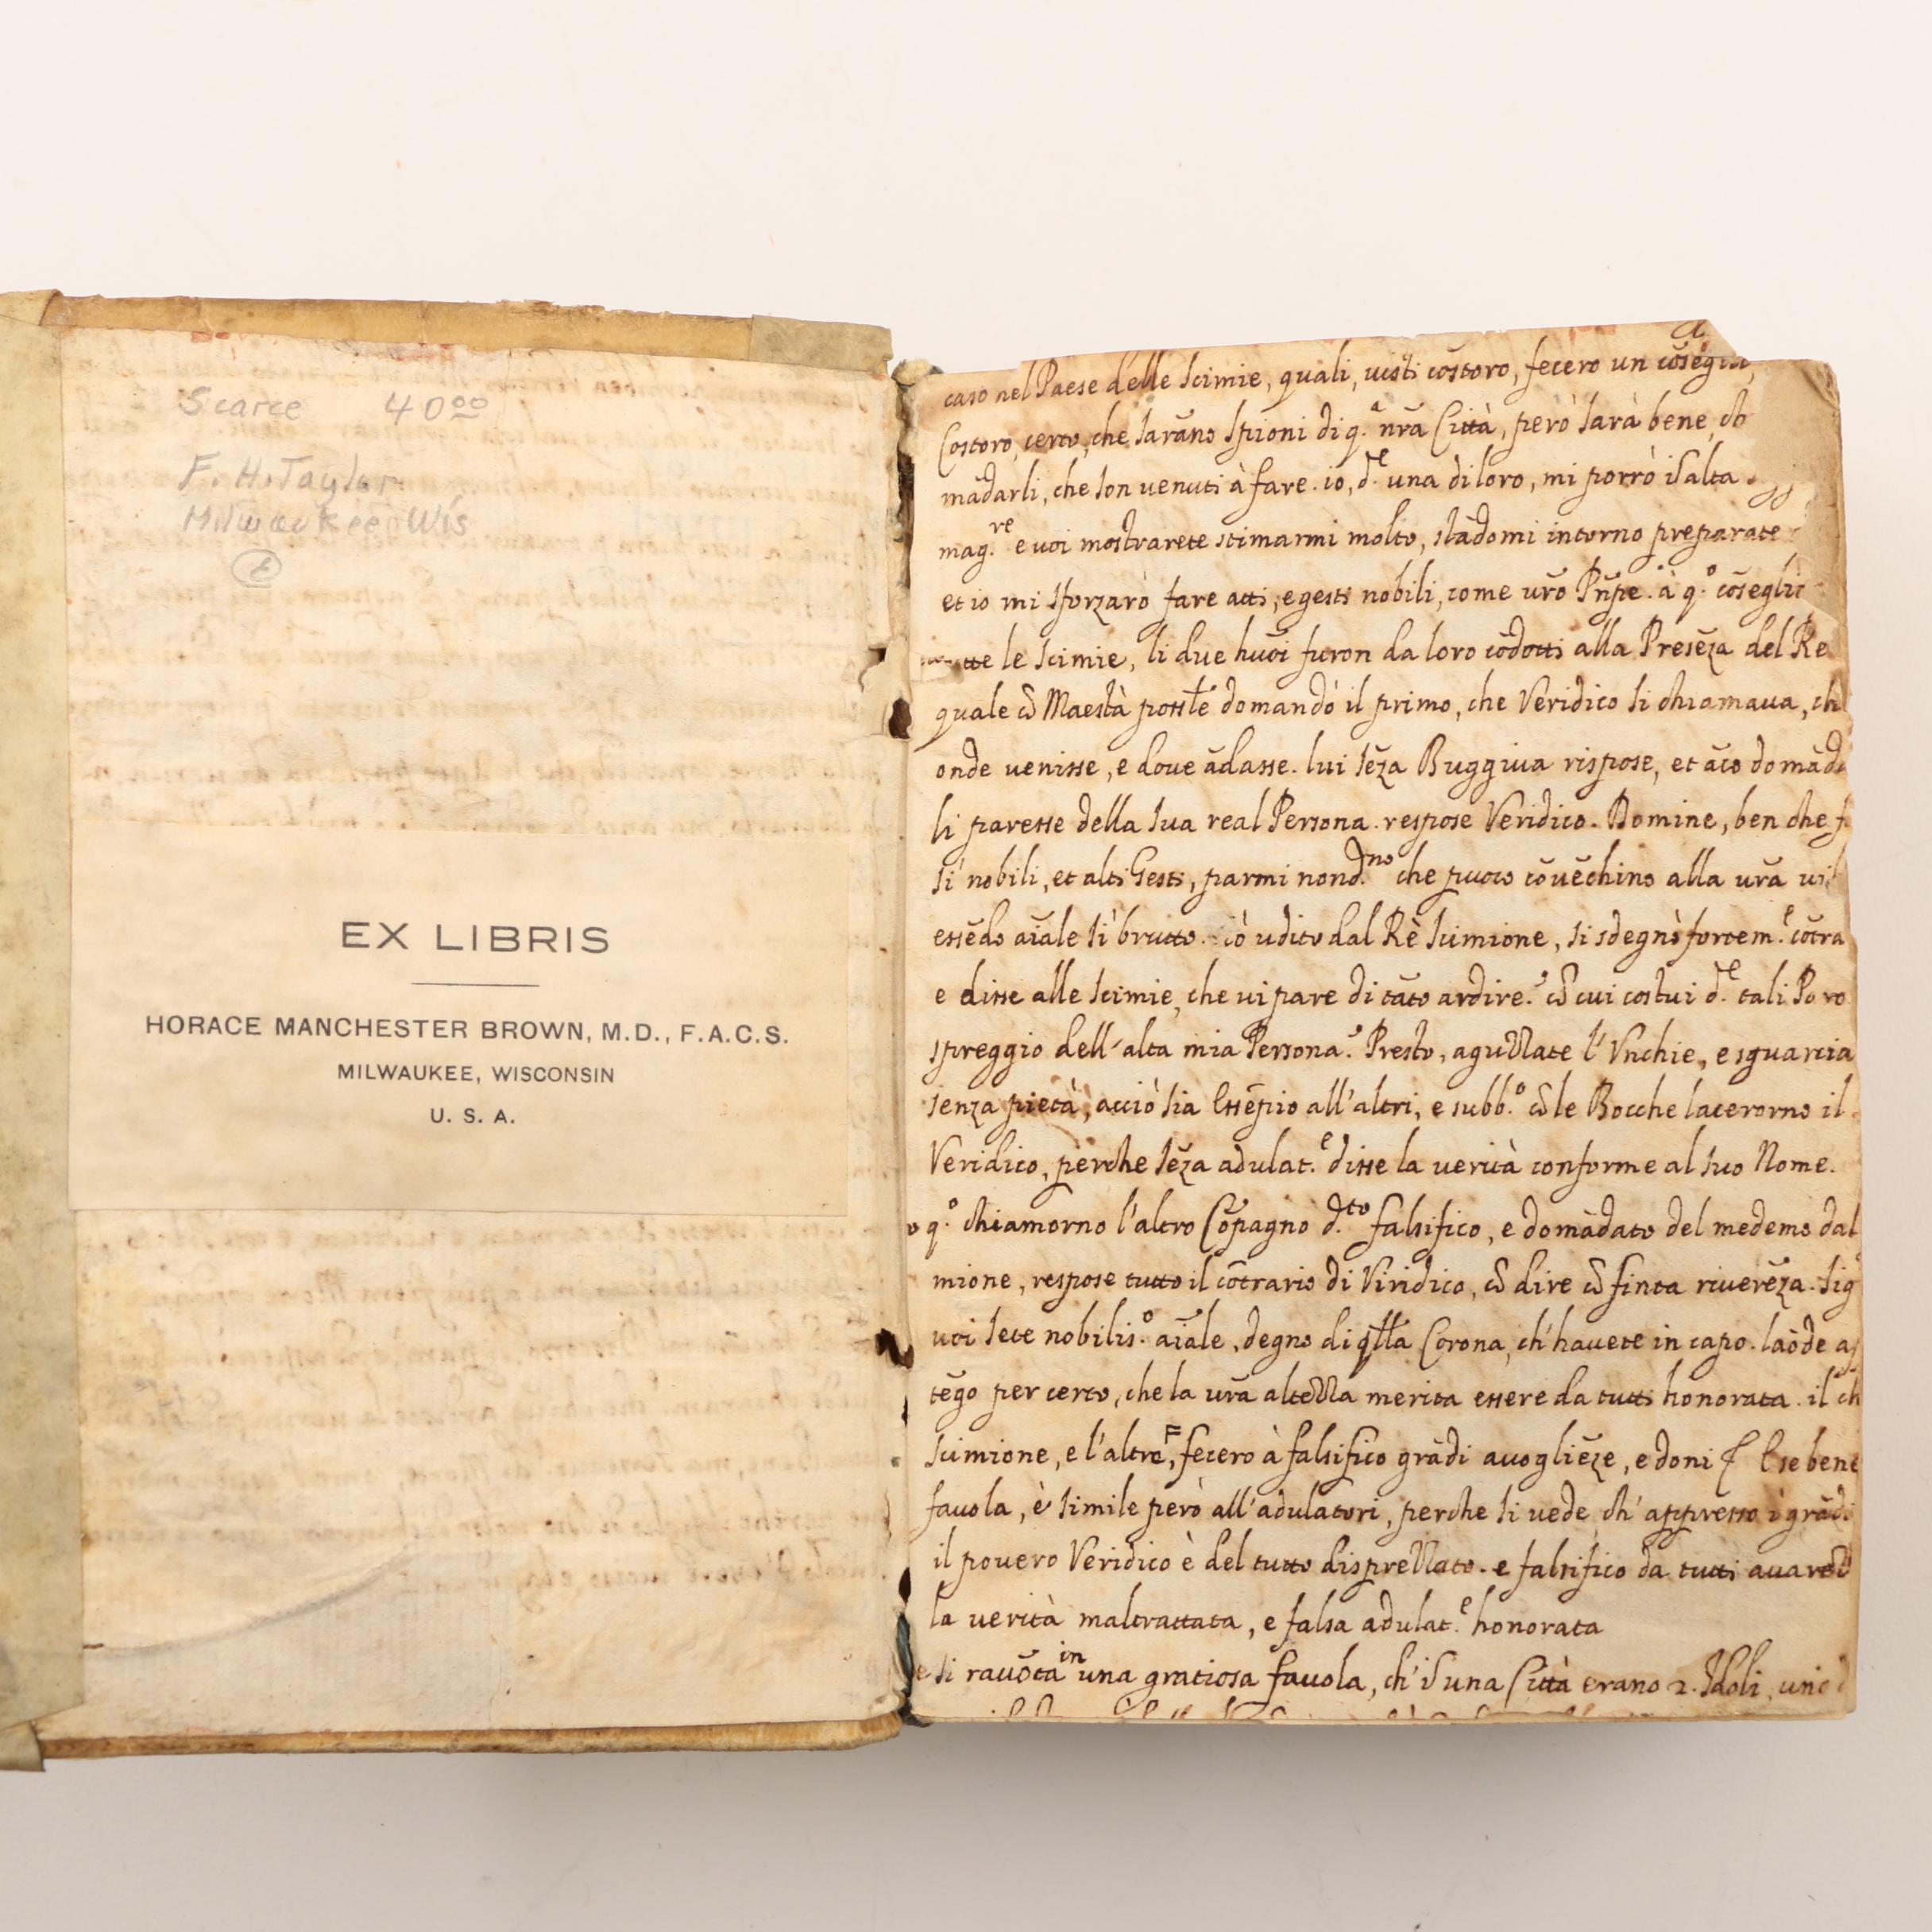 Scarce 40⁰⁰
F. H. Taylor
Milwaukee Wis
EX LIBRIS
HORACE MANCHESTER BROWN, M.D., F.A.C.S.
MILWAUKEE, WISCONSIN
U. S. A.
caso nel Paese delle Scimie, quali, visti cōstoro, fecero un
Costoro, certo, che sarāno Spioni di q.ᵃ nr̄a Città, però sarà bene
mādarli, che son venuti à fare. io, d.ᵉ una di loro, mi porrò ī alta
mag.ʳᵉ e voi mostrarete stimarmi molto, stādomi intorno preparate
et io mi sforzarò fare atti, e gesti nobili, come vr̄o Pñpe. à q.º
le Scimie, li due huōi furon da loro cōdotti alla Presēza del Re
quale cō Maestà possl̄e domandò il primo, che Veridico si chiamava,
onde venisse, e dove ādasse. lui sēza Buggiva rispose, et āco
li paresse della sua real Persona. respose Veridico. Domine, ben che
sì nobili, et alti Gesti, parmi nond.ⁿᵒ che puoco cōvēghino alla vr̄a
essēdo aīale sì brutto. ciò udito dal Rè Scimione, si sdegnò fortem.ᵉ cōtra
e disse alle Scimie, che vi pare di tāto ardire? cō cui costui d.ᵉ tali
spreggio dell'alta mia Persona? Presto, aguzzate l'Vnchie, e
senza pietà, acciò sia Essēpio all'altri, e subb.º cō le Bocche lacerorno il
Veridico, perche sēza adulat.ᵉ disse la verità conforme al suo Nome.
q.º chiamorno l'altro Cōpagno d.ᵗᵒ falsifico, e domādato del medemo dal
mione, respose tutto il cōtrario di Viridico, cō dire cō finta riverēza. Sig
voi sete nobilis.º aīale, degno di qlla Corona, ch'havete in capo. laōde
tēgo per certo, che la vr̄a altezza merita essere da tutti honorata. il
Scimione, e l'altre, fecero à falsifico grādi avogliēze, e doni E se bene
favola, è simile però all'adulatori, perche si vede ch'appresso i grādi
il povero Veridico è del tutto disprezzato. e falsifico da tutti
la verità maltrattata, e falsa adulat.ᵉ honorata
si ravōta in una gratiosa favola, ch'ī una Città erano 2. Idoli,